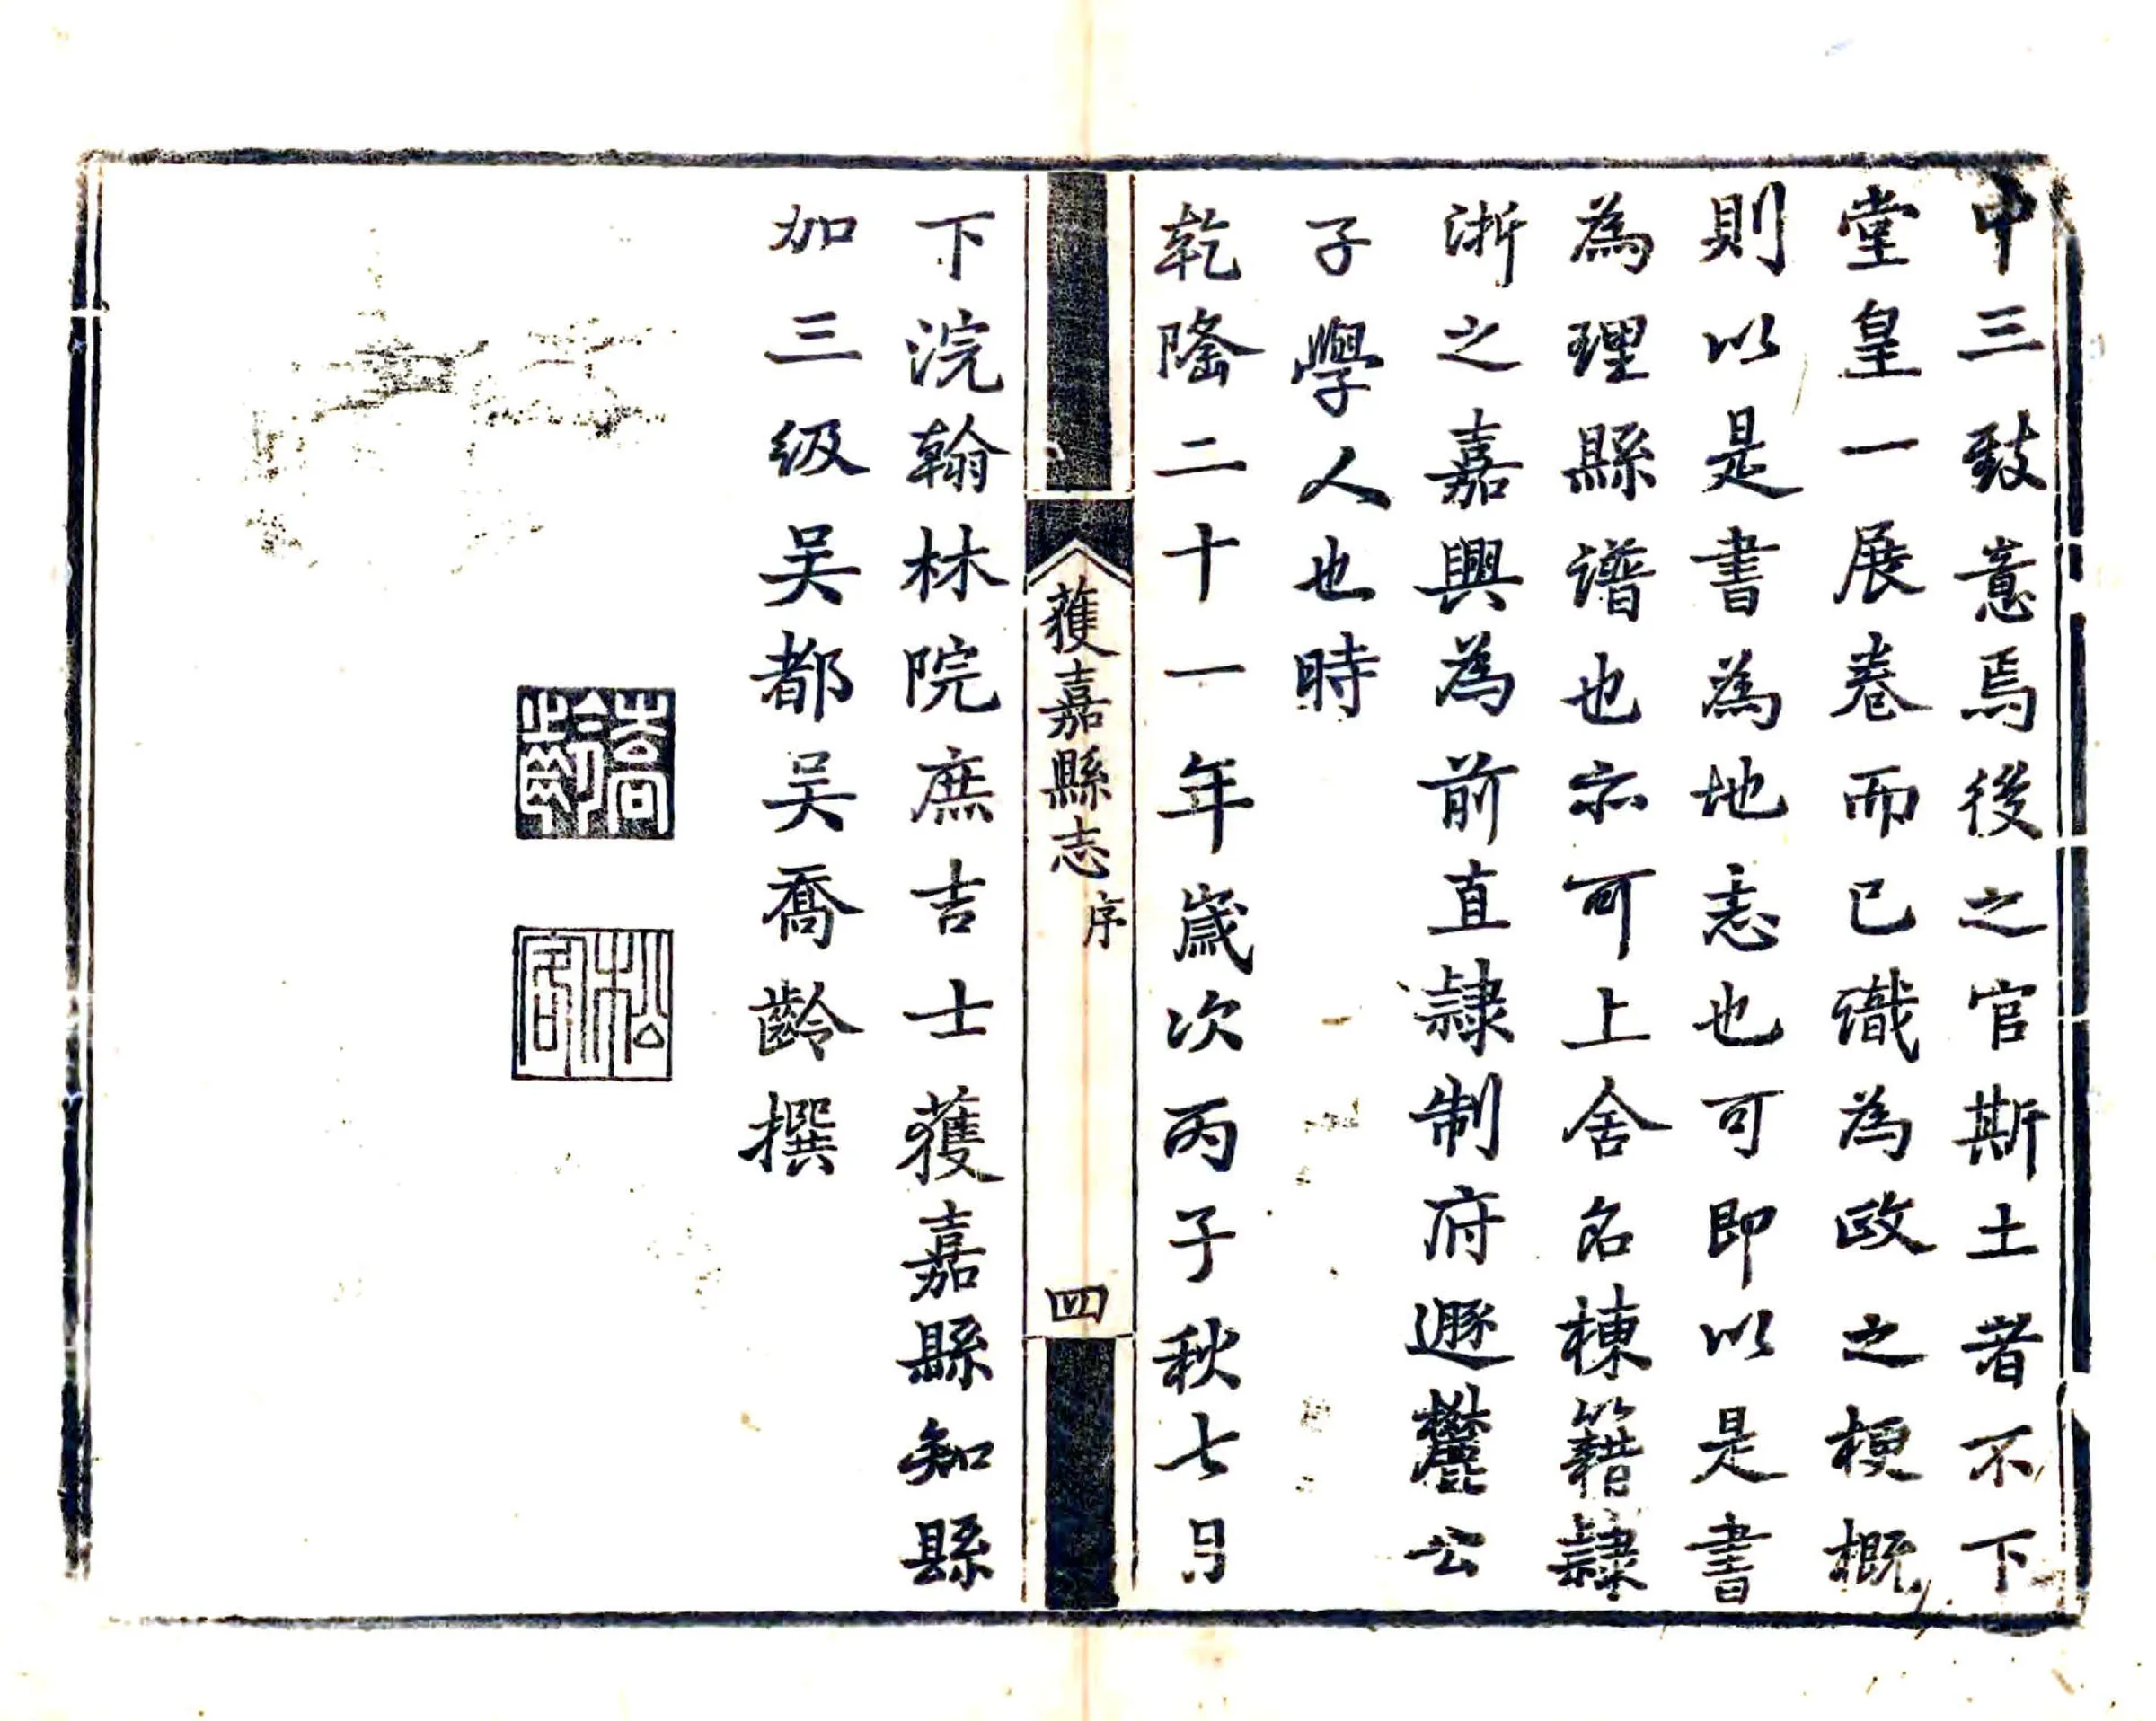 中三致意焉後之官斯土者不下
堂皇一展卷而已識為政之梗概
則以是書為地志也可即以是書
為理縣譜也亦可上舍名棟籍隸
浙之嘉興為前直隸制府遯麓公
子學人也時
乾隆二十一年歲次丙子秋七月
獲嘉縣志
序
四
下浣翰林院庶吉士獲嘉縣知縣
加三級吴都吴喬齡撰
喬齡
松客